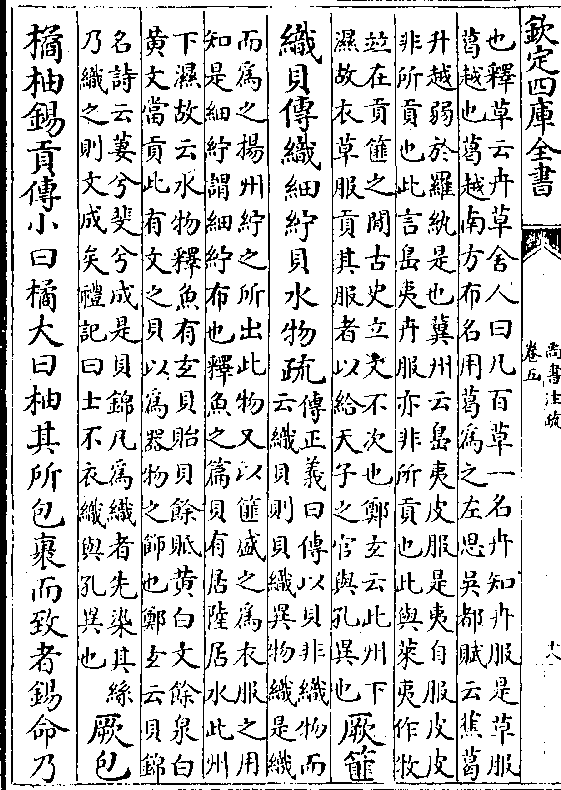 欽定四庫全書
尚書注疏
卷五
十八
也釋草云卉草舍人曰凡百草一名卉知卉服是草服
葛越也葛越南方布名用葛為之左思吳都賦云蕉葛
升越弱於羅紈是也冀州云島夷皮服是夷自服皮皮
非所貢也此言島夷卉服亦非所貢也此與萊夷作牧
並在貢篚之間古史立文不次也鄭玄云此州下
濕故衣草服貢其服者以給天子之官與孔異也
厥篚
織貝傳織細紵貝水物疏
傳正義曰傳以貝非織物而
云織貝則貝織異物織是織
而為之揚州紵之所出此物又以篚盛之為衣服之用
知是細紵謂細紵布也釋魚之篇貝有居陸居水此州
下濕故云水物釋魚有玄貝貽貝餘貾黃白文餘泉白
黃文當貢此有文之貝以為器物之飾也鄭玄云貝錦
名詩云萋兮斐兮成是貝錦凡為織者先染其絲
乃織之則文成矣禮記曰士不衣織與孔異也
厥包
橘柚錫貢傳小曰橘大曰柚其所包裹而致者錫命乃